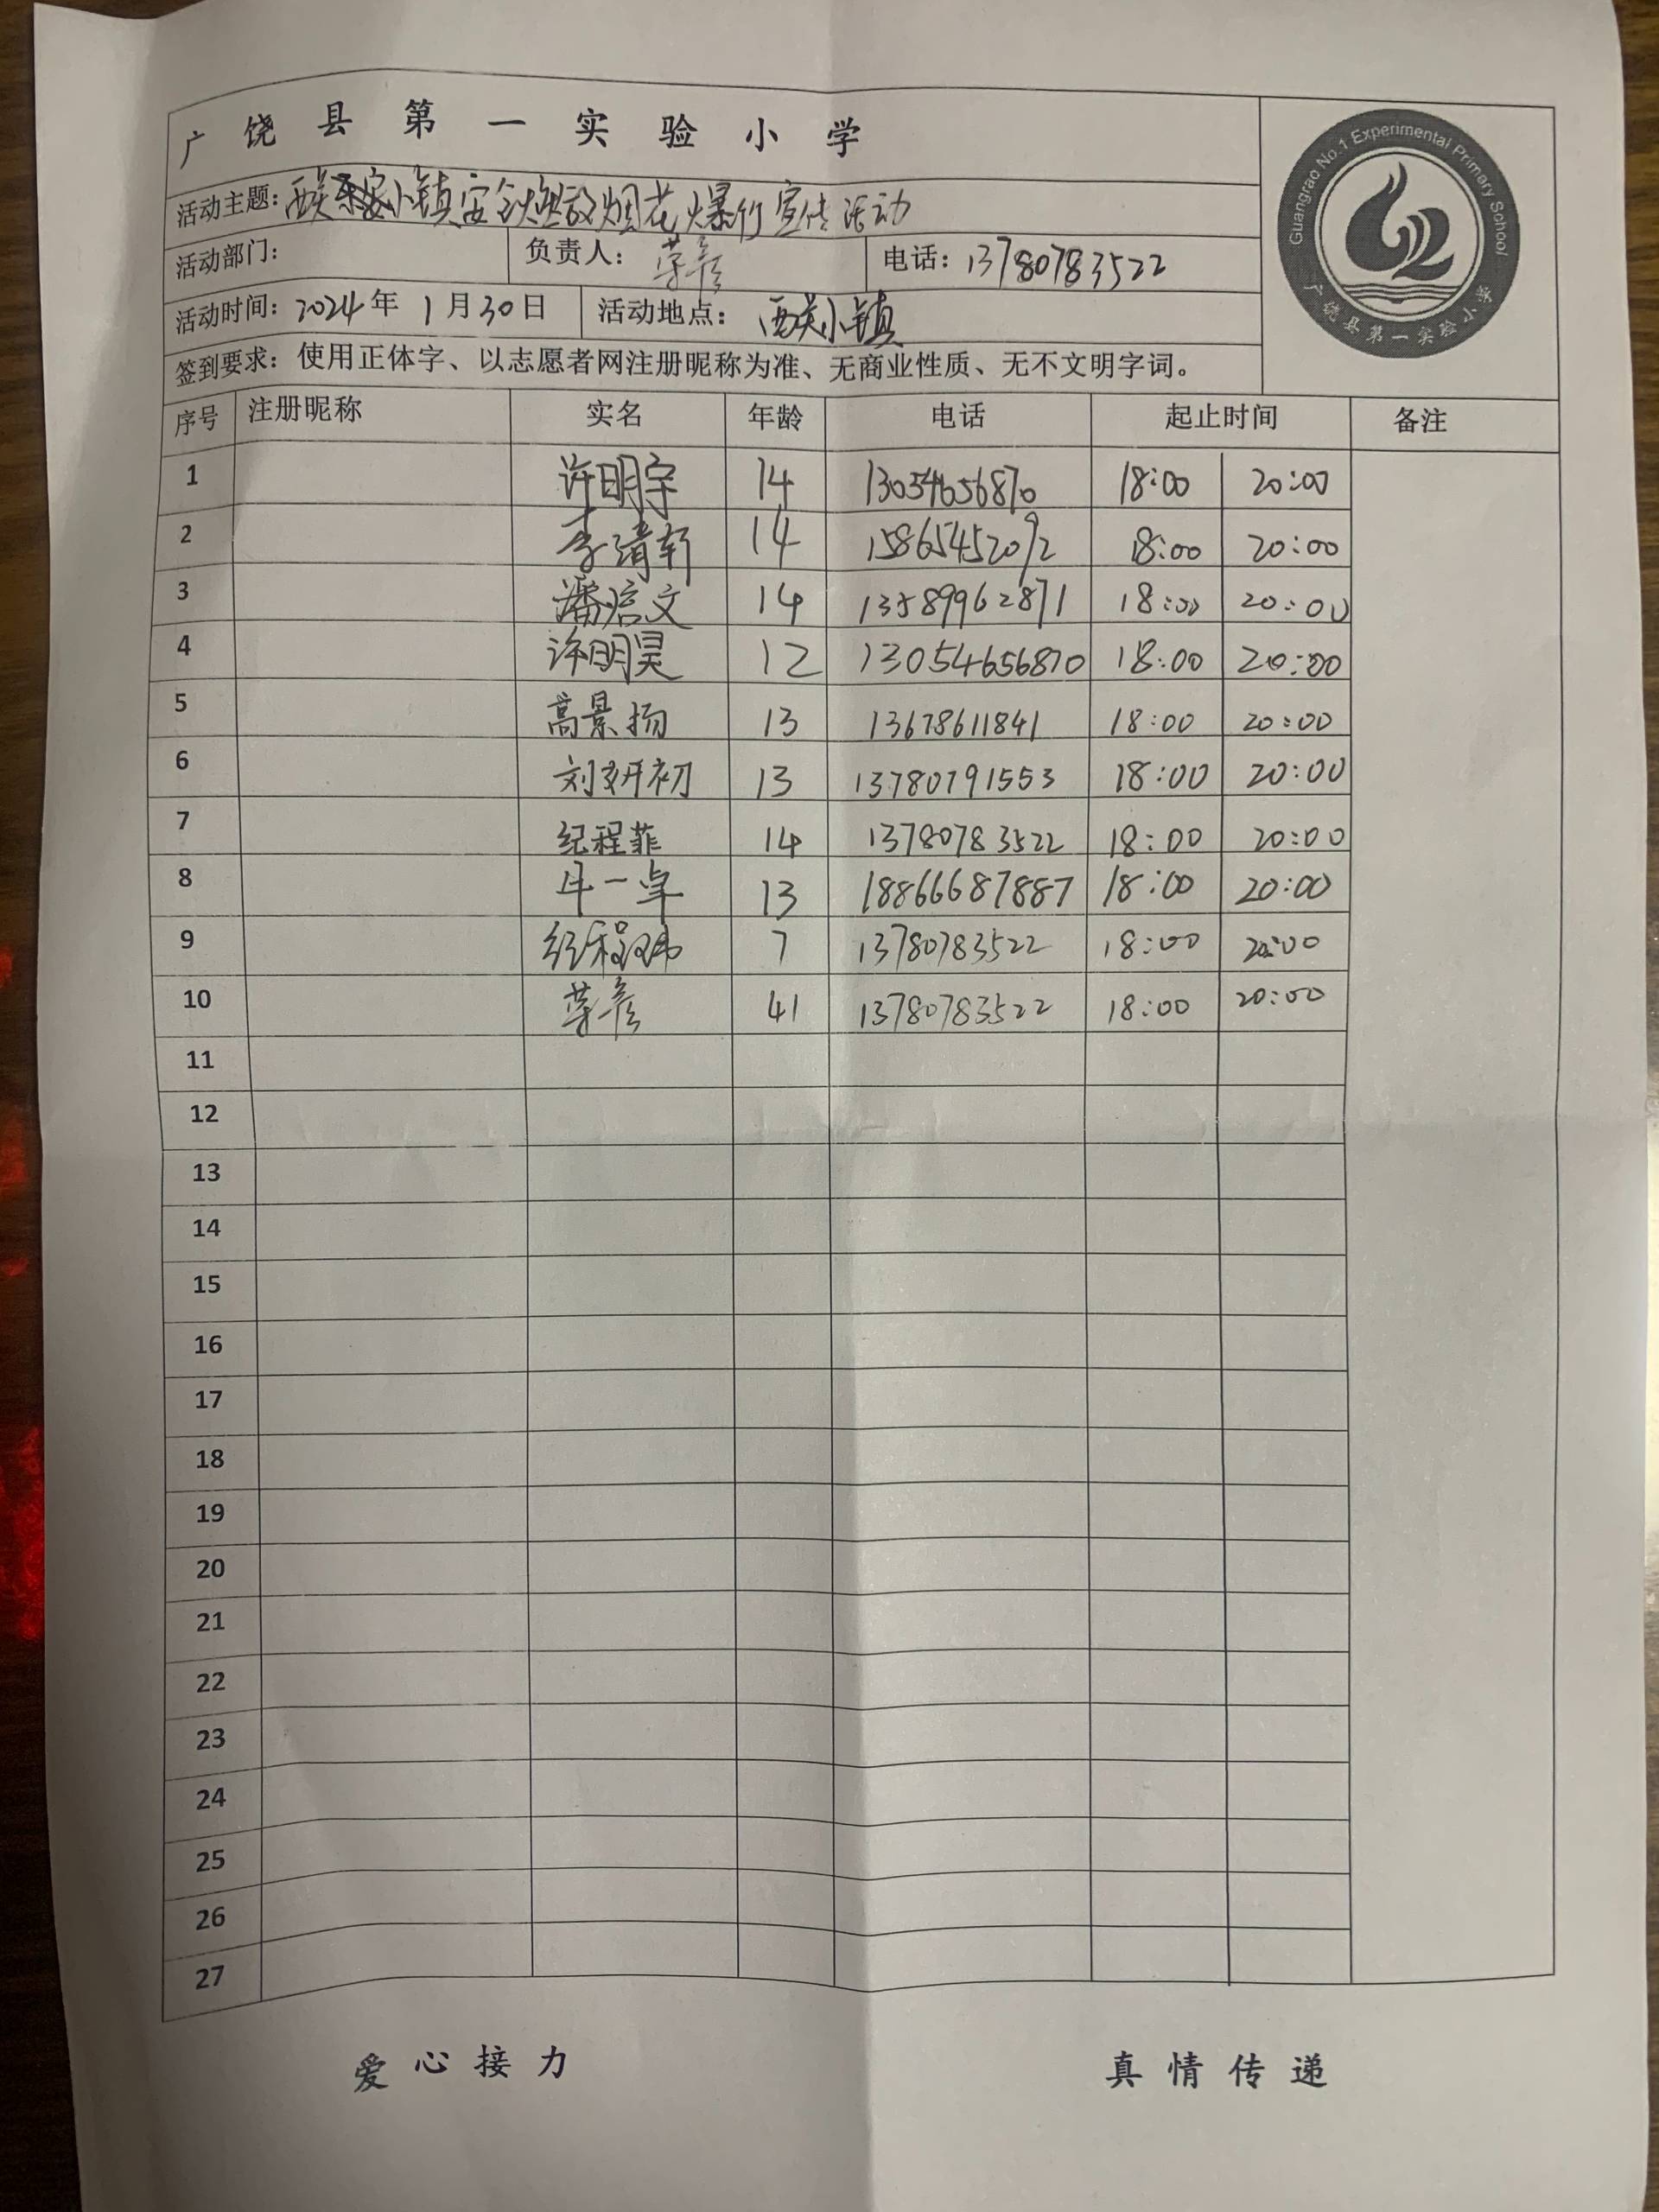 广饶县第一实验小学
Guangrao No.1 Experimental Primary School
广饶县第一实验小学
活动主题：西关小镇安全燃放烟花爆竹宣传活动
活动部门： 负责人： 电话：13780783522
活动时间：2024年 1月30日 活动地点： 西关小镇
签到要求：使用正体字、以志愿者网注册昵称为准、无商业性质、无不文明字词。
序号 注册昵称 实名 年龄 电话 起止时间 备注
1 许明宇 14 13054656870 18:00 20:00
2 李靖轩 14 15865452092 18:00 20:00
3 14 13589962871 18:00 20:00
4 许明昊 12 13054656870 18:00 20:00
5 高景扬 13 13678611841 18:00 20:00
6 刘妍初 13 13780791553 18:00 20:00
7 纪程菲 14 13780783522 18:00 20:00
8 牛一卓 13 18866687887 18:00 20:00
9 7 13780783522 18:00 20:00
10 41 13780783522 18:00 20:00
11
12
13
14
15
16
17
18
19
20
21
22
23
24
25
26
27
爱心接力 真情传递